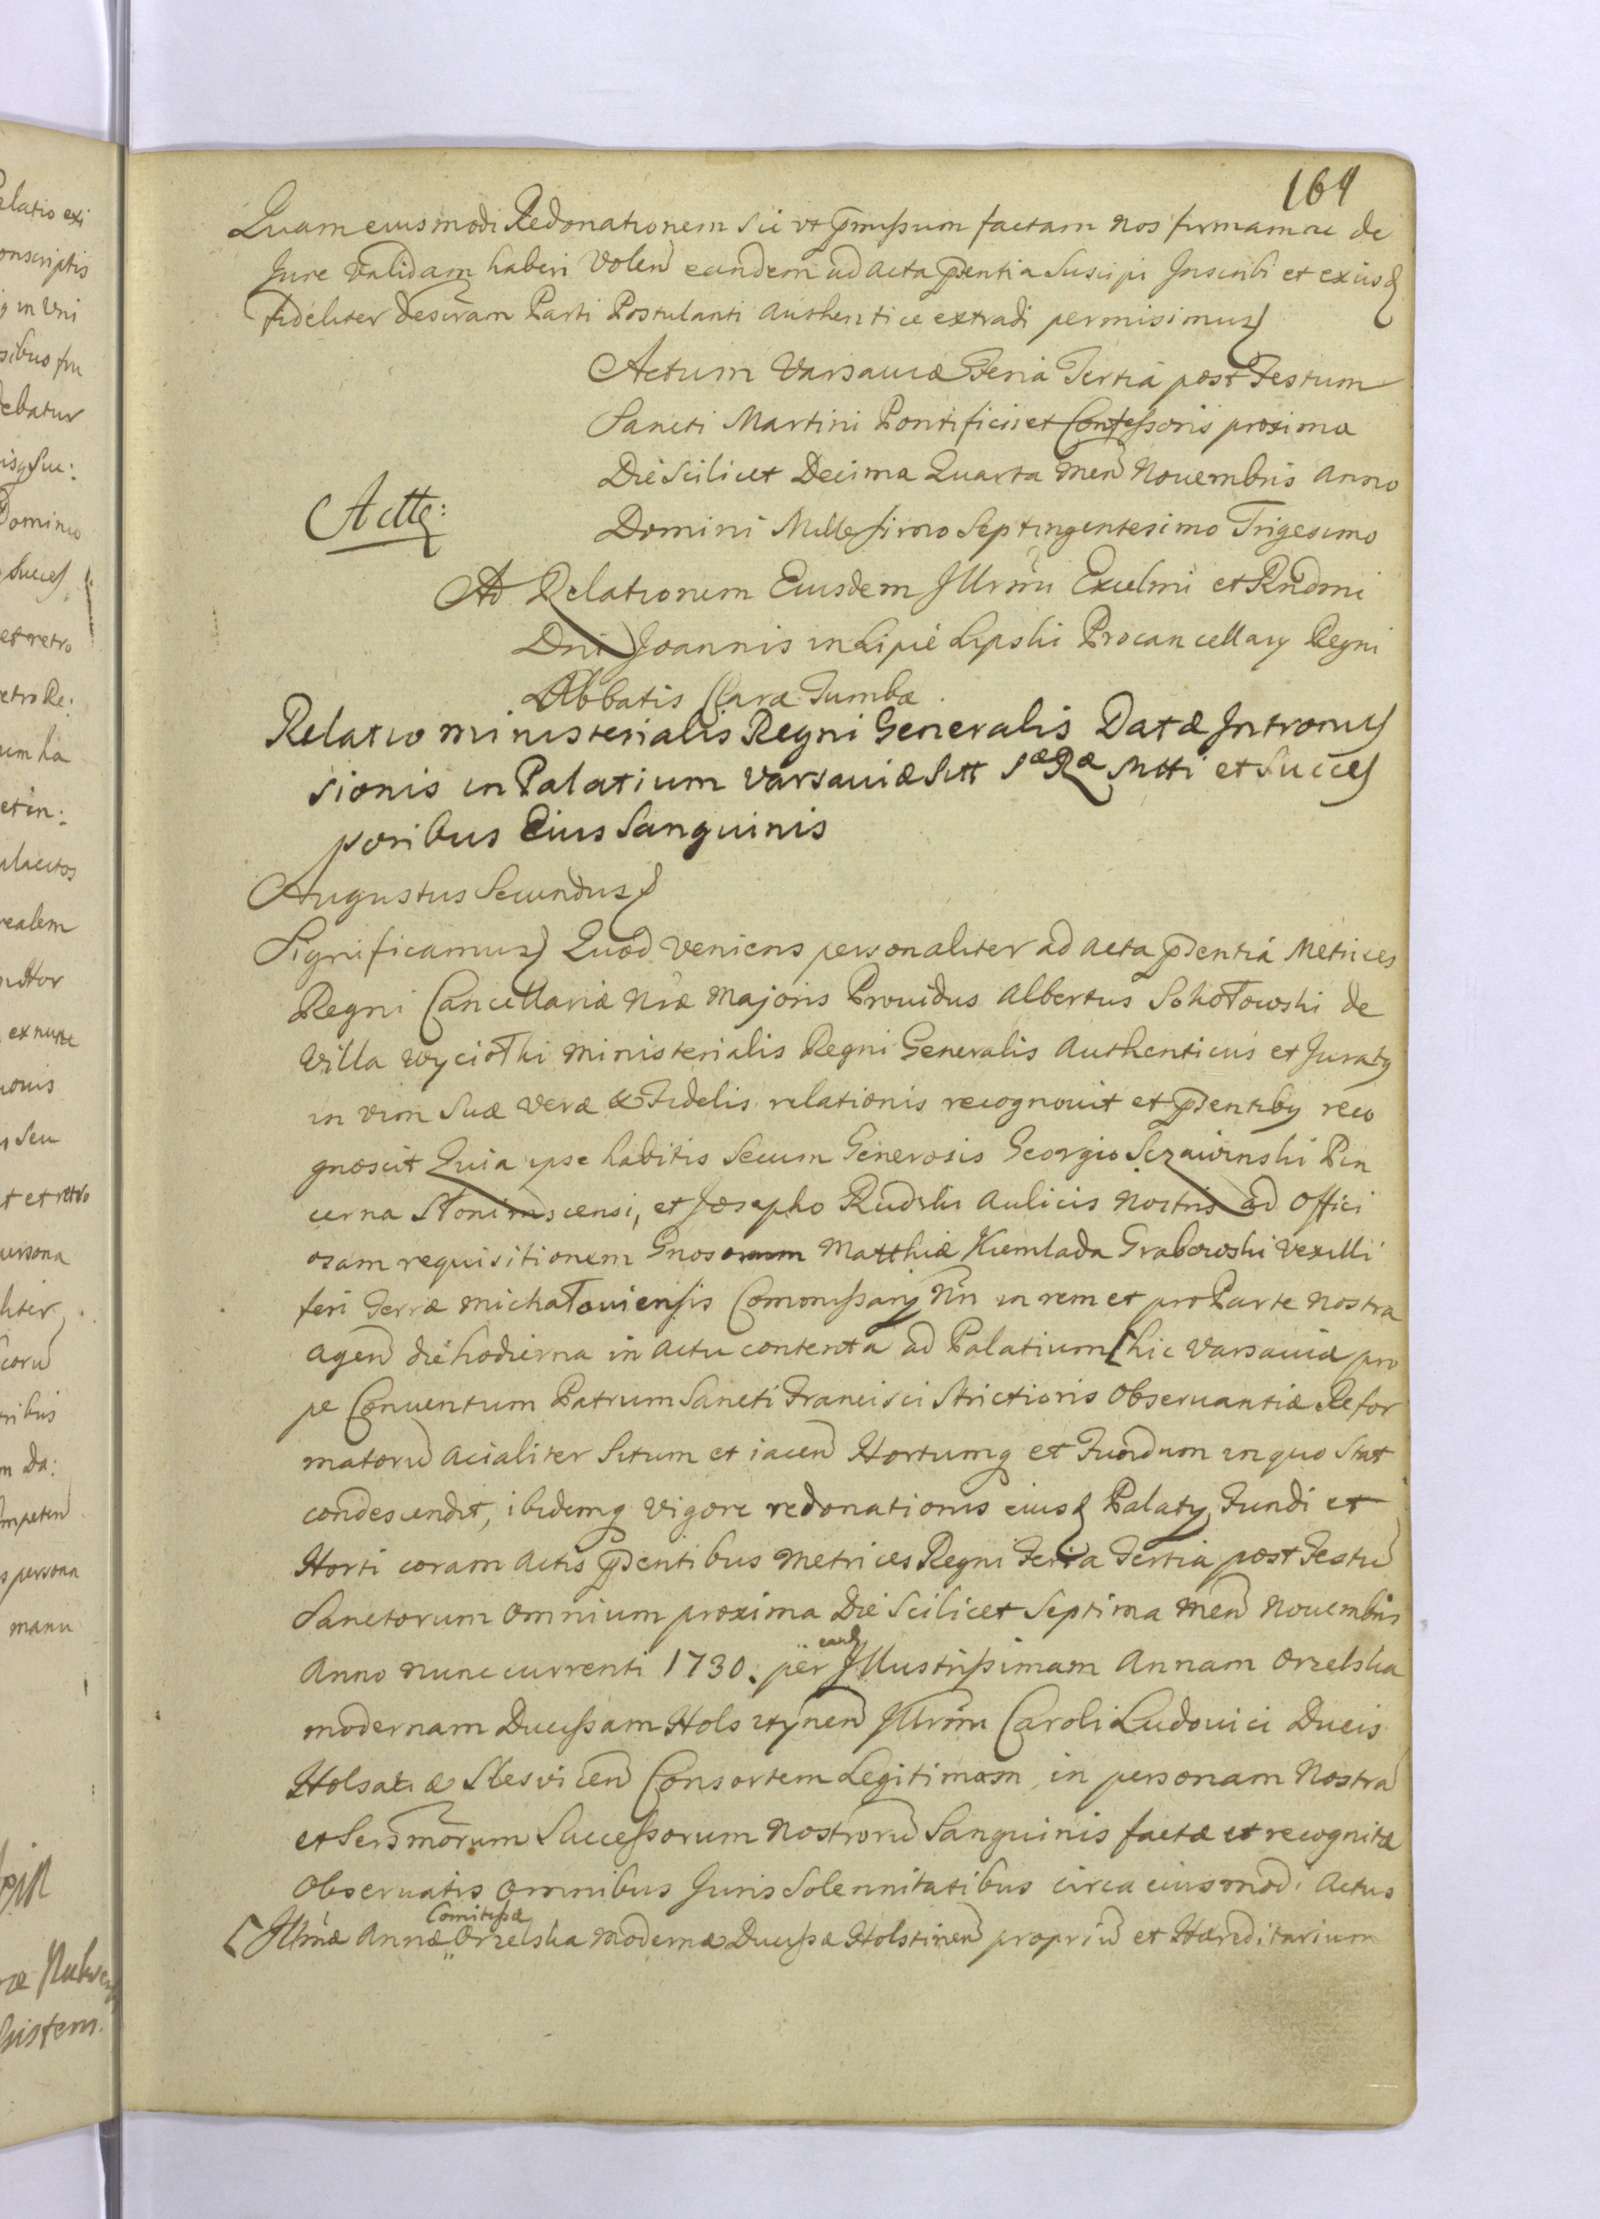 164
Quam eiusmodi Redonationem sic ut pmissum factam nos firmam ac de
Jure validam haberi Volen eandem ad acta pntia Suscipi Inscribi et ex iisd
fideliter descram Parti Postulanti Authentice extradi permisimus
Actum Varsaviæ Feria Tertia post Festum
Sancti Martini Pontificis et Confessoris proxima
Die Scilicet Decima Quarta men Novembris Anno
Domini Millesimo Septingentesimo Trigesimo
Ad Relationem Eiusdem Illrmi Excelmi et Rndmi
Dni Joannis in Lipie Lipski Procancellarij Regni
Abbatis Claræ Tumbæ
Relatio ministerialis Regni Generalis Datæ Intromis
sionis in Palatium Varsaviæ Sitt Sæ Ræ Mtti et Succes
soribus Eius Sanguinis
Augustus Secundus
Significamus Quod veniens personaliter ad acta pntia Metrices
Regni Cancellariæ Nræ Majoris Providus Albertus Sokołowski de
Villa Wyciołki ministerialis Regni Generalis Authenticus et Juratus
in vim Suæ veræ & Fidelis relationis recognovit et pntibus reco
gnoscit Quia ipse habitis Secum Generosis Georgio Szawinski Pin
cerna Słonimscensi, et Josepho Rudzki Aulicis nostris ad offici
osam requisitionem Gnosorum Matthiæ Kiemlada Grabowski Vexilli
feri Terræ Michałoviensis Commissarij Nri in rem et pro Parte nostra
agen die hodierna in actu contenta ad Palatium [ hic Varsaviæ pro
pe Conventum Patrum Sancti Francisci Strictioris Observantiæ Refor
matoru acialiter Situm et iacen Hortumq et Fundum in quo Stat
condescendit, ibidemq vigore redonationis eiusd Palatij Fundi et
Horti coram Actis pntibus Metrices Regni Feria Tertia post Festu
Sanctorum omnium proxima Die Scilicet Septima men Novembris
Anno nunc currenti 1730. per eand Illustrissimam Annam Orzelska
modernam Ducissam Holsztynen Illrmi Caroli Ludovici Ducis
Holsatiæ Slesvicen Consortem Legitimam in personam Nostra
et Sersmorum Successorum nostroru Sanguinis factæ et recognitæ
Observatis omnibus Juris Solennitatibus circa eiusmodi actus
[ Illmæ Annæ Comitissæ Orzelska modernæ Ducissæ Holstinen propriu et Hæreditarium